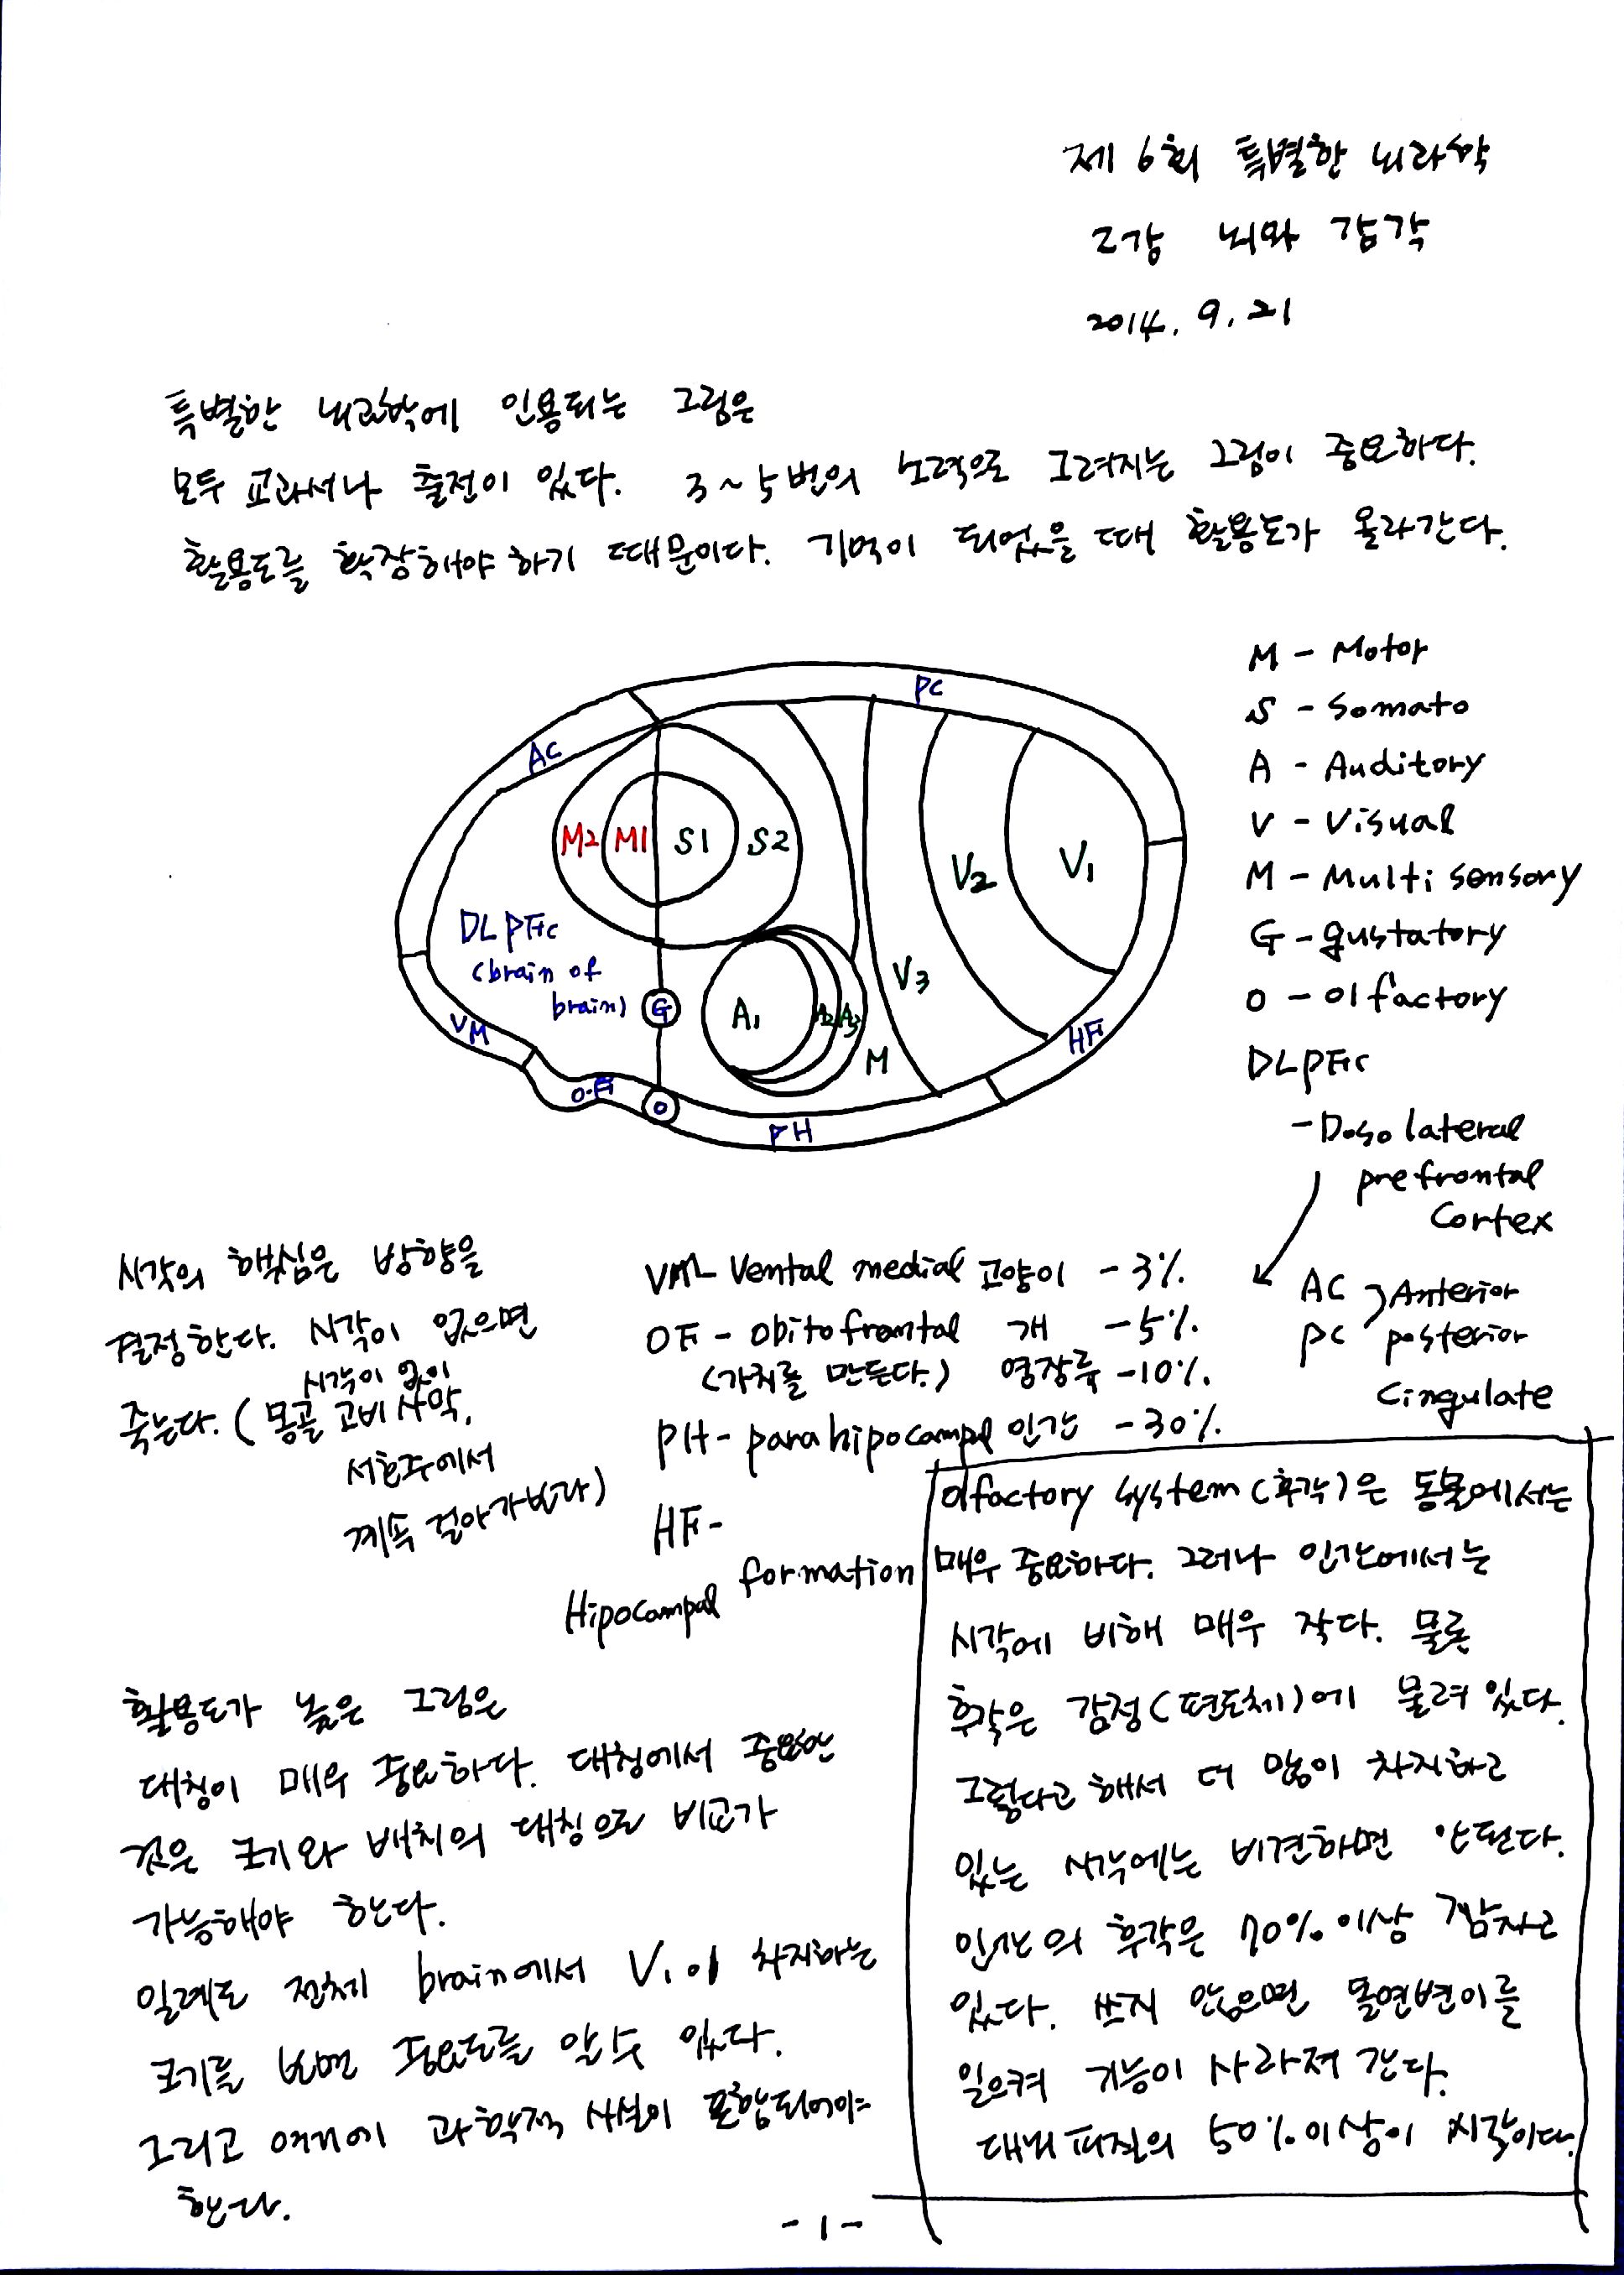 제 6회 특별한 뇌과학
2강 뇌와 감각
2014. 9. 21
특별한 뇌과학에 인용되는 그림은
모두 교과서나 출전이 있다. 3~5번의 노력으로 그려지는 그림이 중요하다.
활용도를 확장해야 하기 때문이다. 기억이 되었을 때 활용도가 올라간다.
PC
AC
M2 M1 S1 S2
V2 V1
DLPFC
(brain of
brain)
G
A1 A2 A3
V3
M
VM
HF
O.F
O
PH
M - Motor
S - Somato
A - Auditory
V - Visual
M - Multi sensory
G - gustatory
O - olfactory
DLPFC
- Doso lateral
prefrontal
Cortex
AC Anterior
PC posterior
Cingulate
시각의 핵심은 방향을
결정한다. 시각이 없으면
시각이 없이
죽는다. (몽골 고비사막,
서호주에서
계속 걸어가본다)
VM- Vental medial 고양이 - 3%
OF - Obitofrontal 개 - 5%
(가치를 만든다.) 영장류 - 10%
PH - parahipocampal 인간 - 30%
HF -
Hipocampal formation
olfactory system (후각)은 동물에서는
매우 중요하다. 그러나 인간에서는
시각에 비해 매우 작다. 물론
후각은 감정(편도체)에 물려 있다.
그렇다고 해서 더 많이 차지하고
있는 시각에는 비견하면 안된다.
인간의 후각은 70% 이상 감자고
있다. 쓰지 않으면 돌연변이를
일으켜 기능이 사라져 간다.
대뇌피질의 50% 이상이 시각이다.
활용도가 높은 그림은
대칭이 매우 중요하다. 대칭에서 중요한
것은 크기와 배치의 대칭으로 비교가
가능해야 한다.
일례로 전체 brain에서 V1이 차지하는
크기를 보면 중요도를 알 수 있다.
그리고 여기에 과학적 사실이 포함되어야
한다.
- 1 -